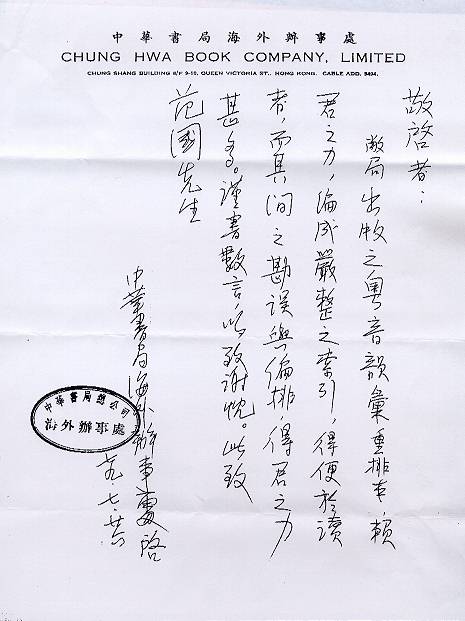 中華書局海外辦事處
CHUNG HWA BOOK COMPANY, LIMITED
CHUNG SHANG BUILDING 8/F 9-10, QUEEN VICTORIA ST., HONG KONG. CABLE ADD. 5494.
敬啓者：
敝局出版之粵音韻彙重排本，賴
君之力，編成嚴整之索引，得便於讀
者，而其间之勘誤與編排，得君之力
甚多。謹書數言，以致謝忱。此致
范國先生
中華書局海外辦事處啓
中華書局總公司
海外辦事處